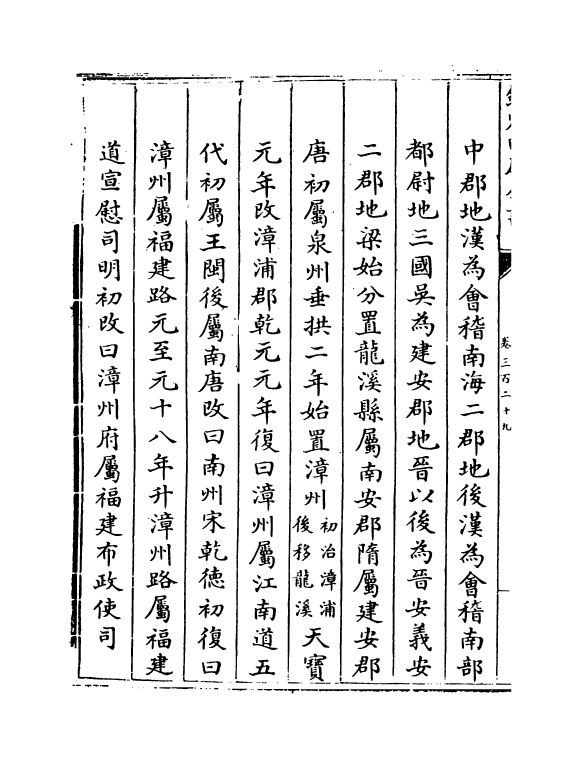 中郡地漢為會稽南海二郡地後漢為會稽南部
都尉地三國吳為建安郡地晉以後為晉安義安
二郡地梁始分置龍溪縣屬南安郡隋屬建安郡
唐初屬泉州垂拱二年始置漳州初治漳浦後移龍溪天寶
元年改漳浦郡乾元元年復曰漳州屬江南道五
代初屬王閩後屬南唐改曰南州宋乾德初復曰
漳州屬福建路元至元十八年升漳州路屬福建
道宣慰司明初改曰漳州府屬福建布政使司
卷三百二十九